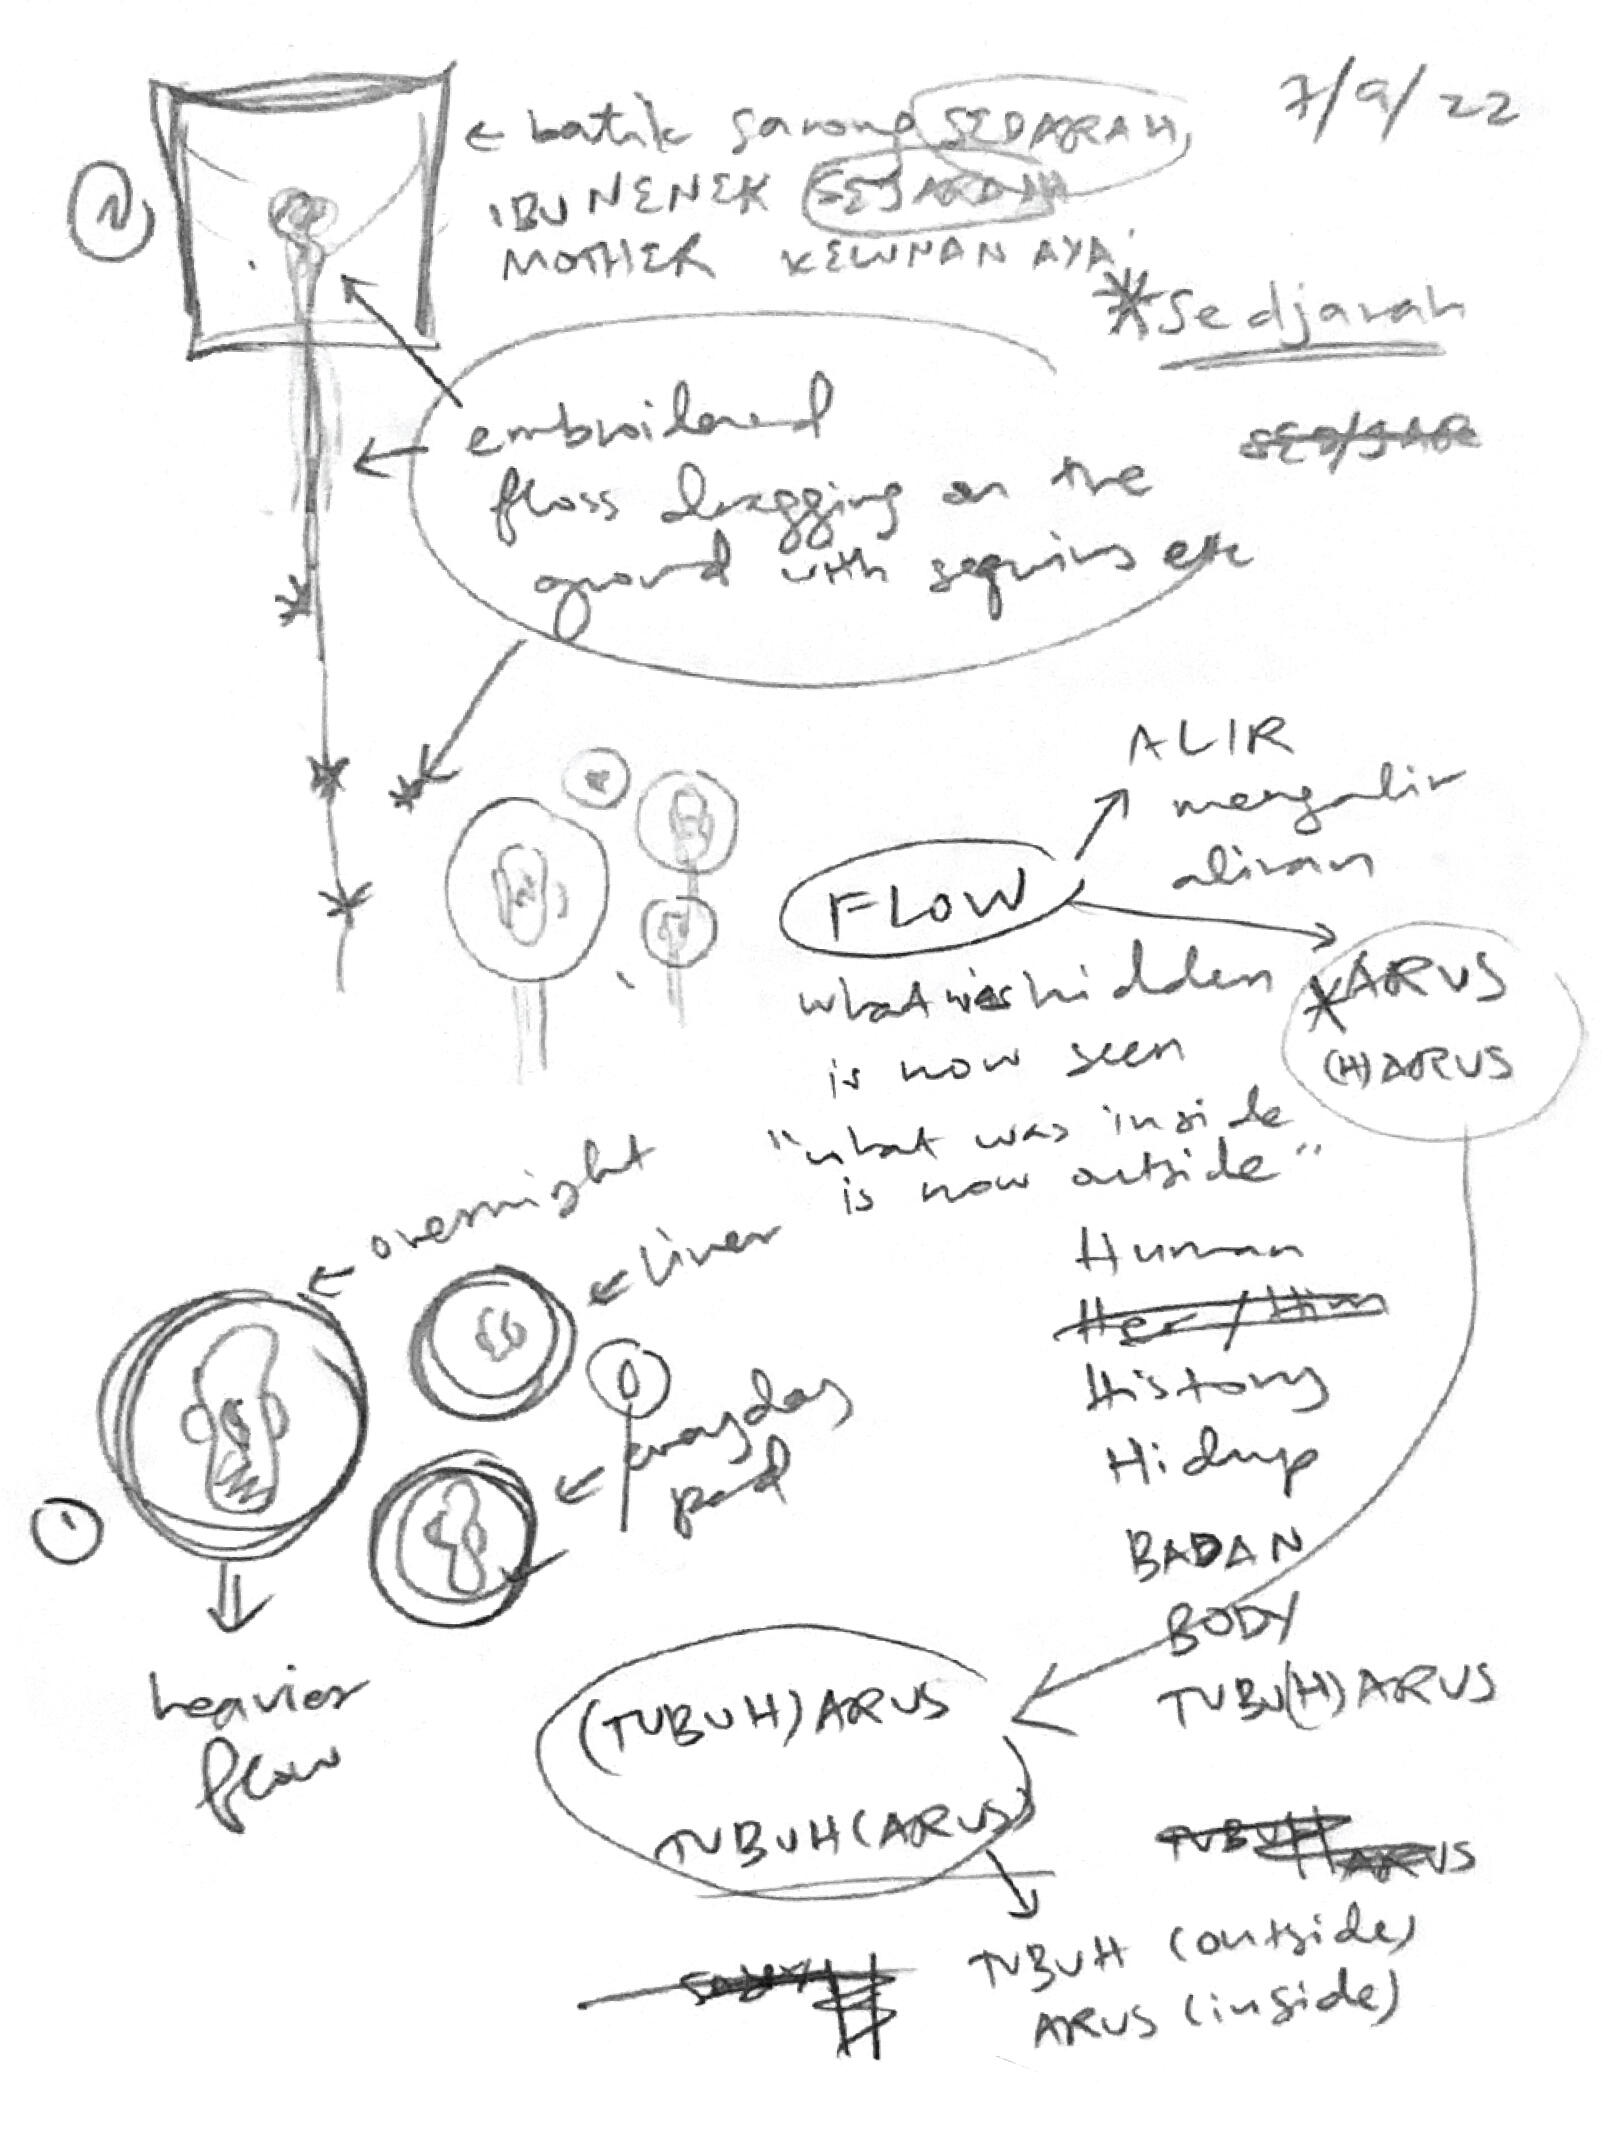 7/9/22
2
← batik sarong SEDARAH,
IBU NENEK SEJARAH
MOTHER
*Sedjarah
embroidered
floss dragging on the
ground with sequins etc
ALIR
mengalir
aliran
FLOW
*ARUS
(H)ARUS
what was hidden
is now seen
"what was inside
is now outside"
← overnight
← liner
← everyday
pad
1
heavier
flow
Human
Her/Him
History
Hidup
BADAN
BODY
TUBU(H)ARUS
(TUBUH)ARUS
TUBUH(ARUS)
TUBUH
ARUS
TUBUH (outside)
ARUS (inside)